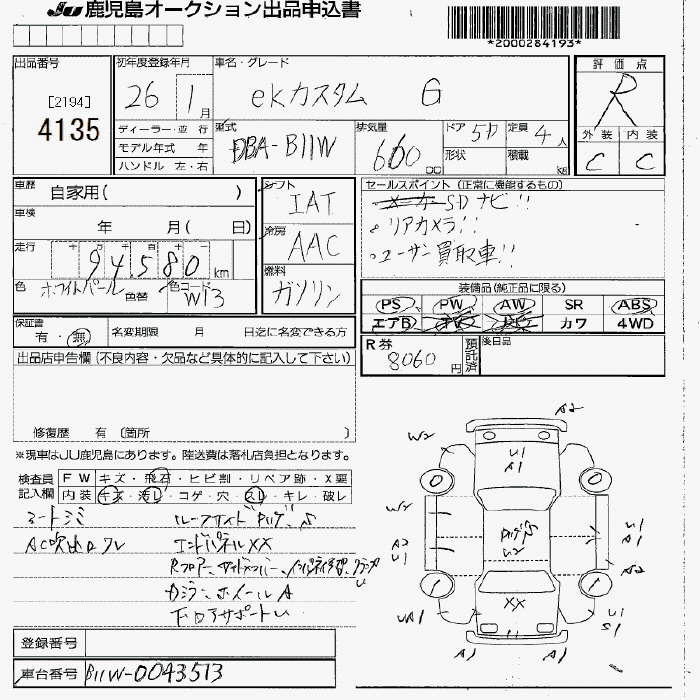 JU 鹿児島オークション出品申込書
*2000284193*
出品番号
[2194]
4135
初年度登録年月
26 1月
車名・グレード
ekカスタム G
評価点
R
外装 内装
C C
ディーラー・並行
モデル年式 年
ハンドル 左・右
型式
DBA-B11W
排気量
660 cc
ドア 5D
形状
定員 4人
積載 kg
車歴 自家用( )
車検 年 月( 日)
走行 十 万 千 百 十
94,580 km
色 ホワイトパール 色替 色コード W13
シフト
IAT
冷房
AAC
燃料
ガソリン
セールスポイント (正常に機能するもの)
SDナビ!!
。リアカメラ!!
。ユーザー買取車!!
装備品(純正品に限る)
PS PW AW SR ABS
エアB TV カワ 4WD
保証書
有・無 名変期限 月 日迄に名変できる方
R券
8060円
預託済
後日品
出品店申告欄(不良内容・欠品など具体的に記入して下さい)
修復歴 有 〔箇所 〕
※現車はJU鹿児島にあります。陸送費は落札店負担となります。
検査員記入欄
FW キズ・飛石・ヒビ割・リペア跡・X要
内装 キズ・汚レ・コゲ・穴・スレ・キレ・破レ
シートシミ
AC吹出口ワレ
エンドパネルXX
ガラミ ホイールA
下回アサポートU
A2
W2
U1
A1
W2
A2
U1
U2
U1
A2
XX
UA1
U1
S1
A1
A1
登録番号
車台番号 B11W-0043513